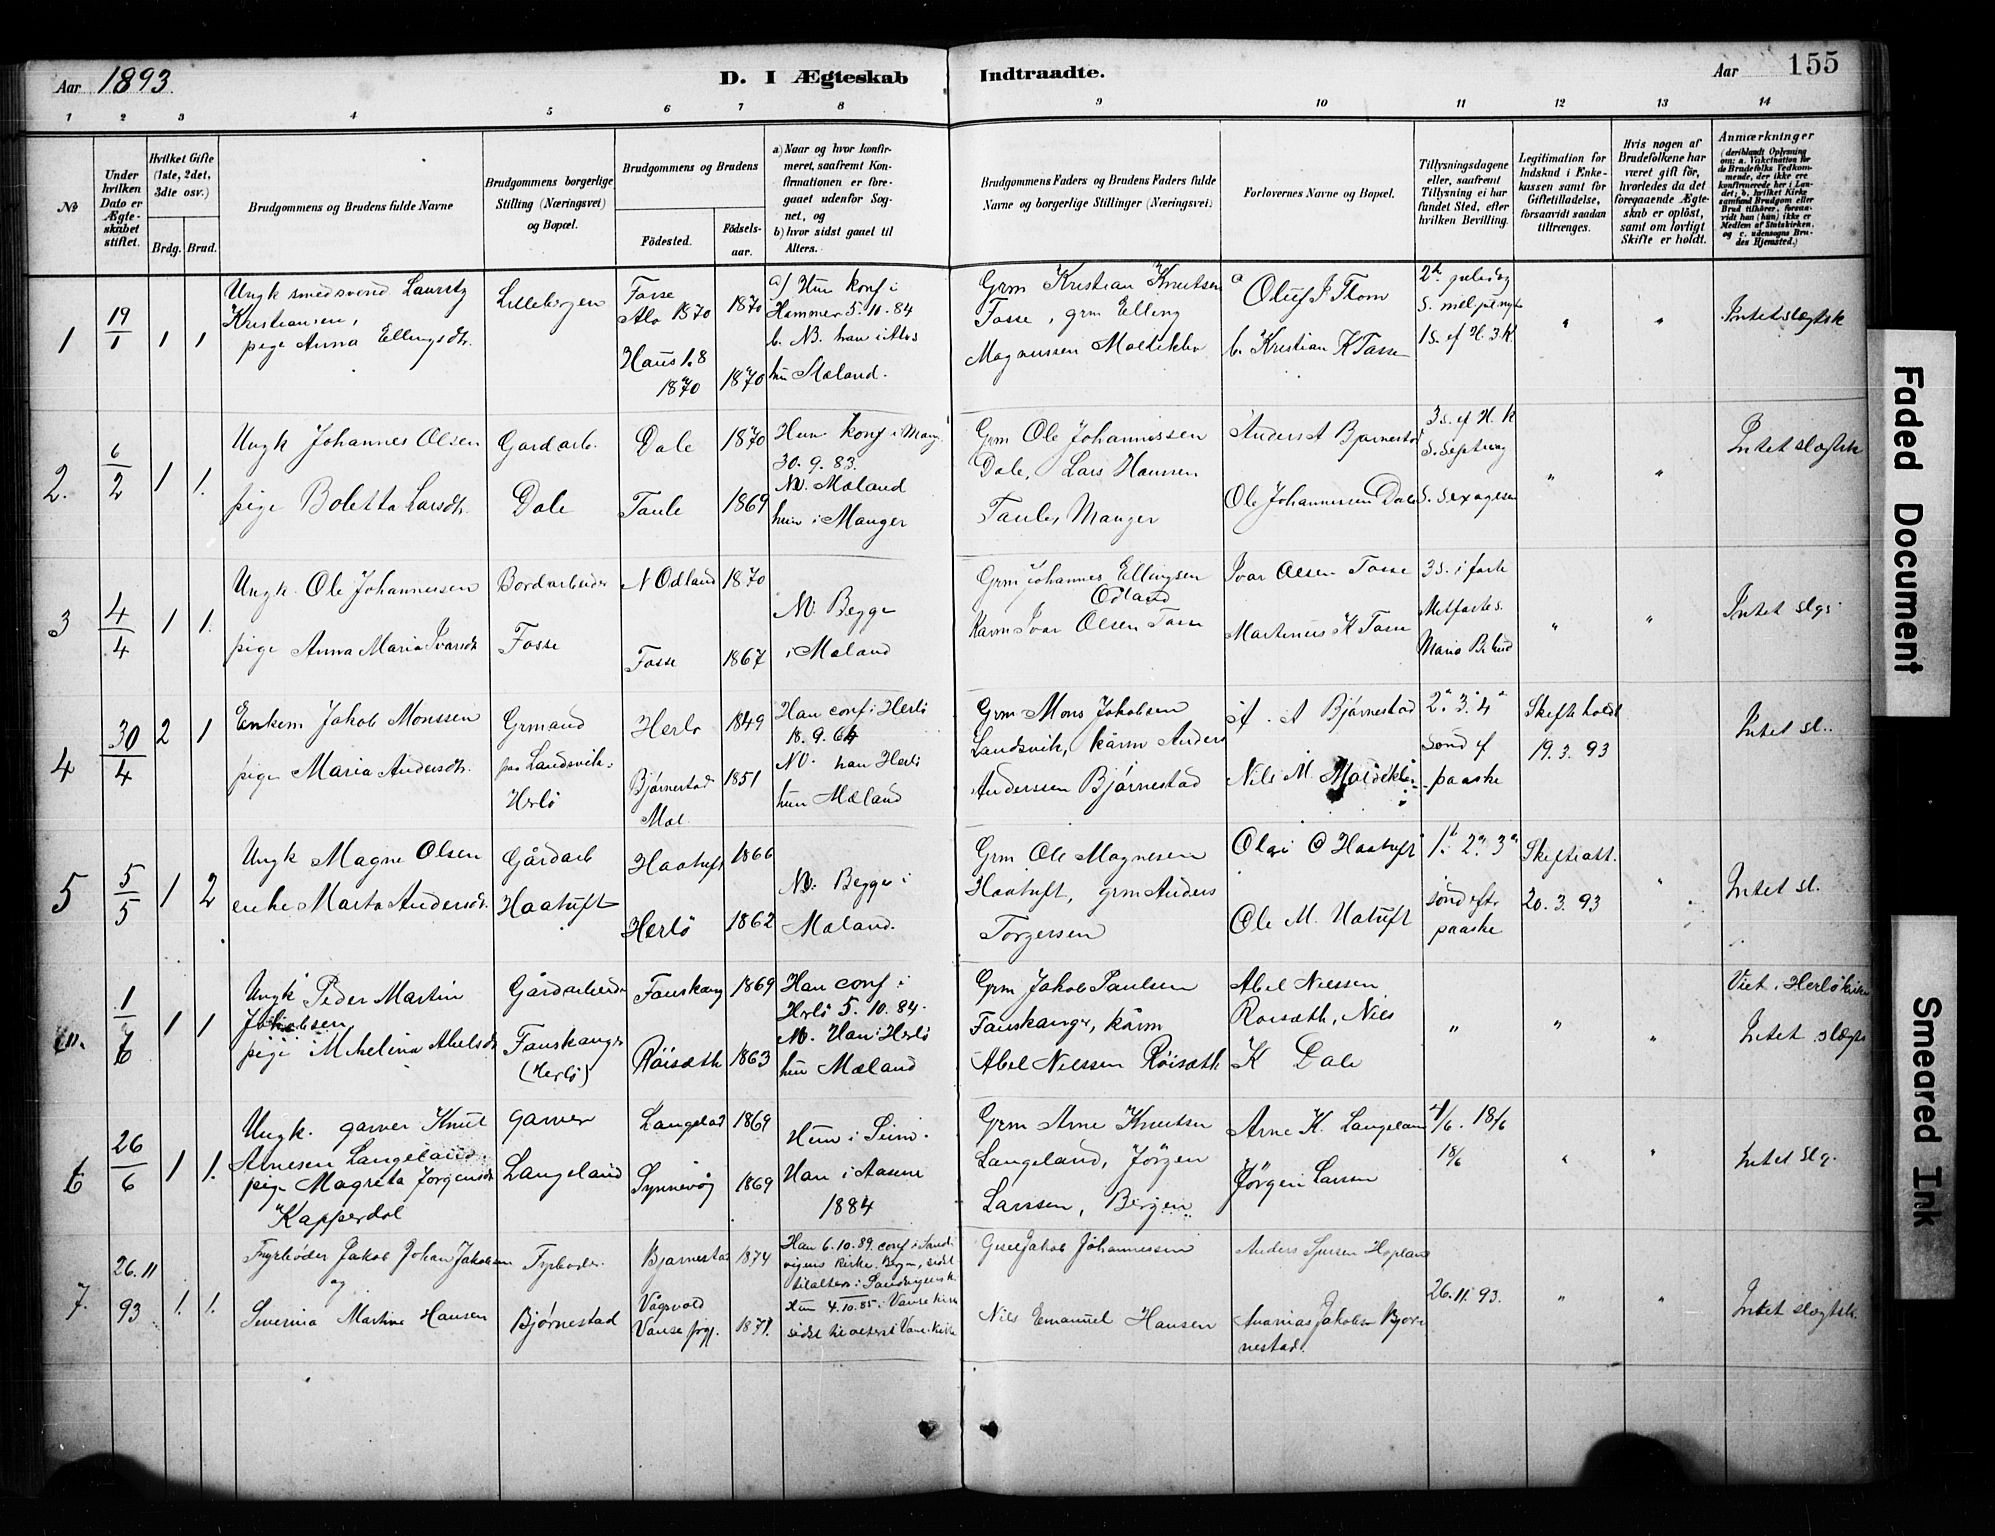 Aar 1893.
D. I Ægteskab Indtraadte.
Aar 155
1 2 3 4 5 6 7 8 9 10 11 12 13 14
No
Under hvilken Dato er Ægteskabet stiftet.
Hvilket Gifte (1ste, 2det, 3die osv.)
Brdg. Brud.
Brudgommens og Brudens fulde Navne
Brudgommens borgerlige Stilling (Næringsvei) og Bopæl.
Brudgommens og Brudens
Födested.
Födselsaar.
a) Naar og hvor konfirmeret, saafremt Konfirmationen er foregaaet udenfor Sognet, og
b) hvor sidst gaaet til Alters.
Brudgommens Faders og Brudens Faders fulde Navne og borgerlige Stillinger (Næringsvei)
Forlovernes Navne og Bopæl.
Tillysningsdagene eller, saafremt Tillysning ei har fundet Sted, efter hvilken Bevilling.
Legitimation for Indskud i Enkekassen samt for Giftetilladelse, forsaavidt saadan tiltrænges.
Hvis nogen af Brudefolkene har været gift för, hvorledes da det foregaaende Ægteskab er oplöst, samt om lovligt Skifte er holdt.
Anmærkninger
(deriblandt Oplysning om: a. Vakcination for de Brudefolks Vedkommende, der ikke ere konfirmerede her i Landet; b. hvilket Kirkesamfund Brudgom eller Brud tilhörer, forsaavidt han (hun) ikke er Medlem af Statskirken, og c. udensogns Brudes Hjemsted.)
1 19/1 1 1
Ungk smedsvend Lauritz
Kristiansen,
pige Anna Ellingsdtr.
Lillebergen
Fosse
Alo 1870 1870
Haus 1.8
1870 1870
a) Hun konf i
Hammer 5.10.84
b. NB. han i Alvs
hun Mæland.
Grm Kristian Knutsen
Fosse, grm Elling
Magnussen Moldeklev
a Oluf J Flom
b. Kristian K Fosse
" "
Intet slegtsk
2. 6/2 1 1.
Ungk Johannes Olsen
pige Boletta Larsdtr.
Gardarb.
Dale
Dale 1870
Taule 1869
Hun konf i Mang.
30.9.83.
NB. Mæland
hun i Manger
Grm Ole Johannessen
Dale, Lars Hansen
Taule, Manger
Anders A Bjørnestad
Ole Johannessen Dale
3 s. ef H. K
S. Septuag
S. Sexages
" "
Intet slegtsk
3 4/4 1 1.
Ungk. Ole Johannessen
pige Anna Maria Ivarsdt
Bordarbeider
Fosse
N Odland 1870
Fosse 1867
NB. Begge
i Mæland
Grm Johannes Ellingsen
Odland
Kårm Ivar Olsen Fosse
Ivar Olsen Fosse
Martinus K Fosse
3 s. i faste
Midfastes.
Maria Bebud
" "
Intet slgs.
4 30/4 2 1
Enkem Jakob Monssen
pige Maria Andersdtr.
Grmand
paa Landsvik
Herlö
Herlö 1849
Bjørnestad 1851
Mæl.
Han conf i Herlö
18.9.64
NB. han Herlö
hun Mæland
Grm Mons Jakobsen
Landsvik, kårm Anders
Anderssen Bjørnestad
A. A Bjørnestad
Nils M. Moldeklev
2. 3. 4
sönd ef
paaske
Skifte holdt
19.3.93
Intet sl..
5 5/5 1 2
Ungk Magne Olsen
enke Marta Andersdt.
Gårdarb
Haatuft
Haatuft 1866
Herlö 1862
NB. Begge i
Mæland.
Grm Ole Magnesen
Haatuft, grm Anders
Torgersen
Olai O Haatuft
Ole M. Hatuft
1. 2. 3
sönd eftr
paaske
Skifteatt.
20.3.93
"
Intet sl.
1 1
Ungk Peder Martin
Jakobsen
pige Mikelina Abelsdt
Gårdarbeider
Fauskanger
(Herlö)
Fauskang 1869
Röisæth 1863
Han conf i
Herlö 5.10.84.
NB. Han i Herlö
hun Mæland
Grm Jakob Paulsen
Fauskanger, kårm
Abel Nilssen Röisæth
Abel Nilssen
Roisæth, Nils
K Dale
" " "
Viet i Herlö kirke
Intet slegts
6 26/6 1 1.
Ungk. garver Knut
Arnesen Langeland.
pige Magreta Jörgensdt
Kapperdal
garver
Langeland
Langelad 1869
Synnevåg 1869
Hun i Seim.
Han i Aasene
1884
Grm Arne Knutsen
Langeland, Jörgen
Larssen, Bergen
Arne K. Langeland
Jörgen Larsen
4/6. 18/6
18/6
" "
Intet slg.
7. 26.11 93 1. 1.
Fyrböder Jakob Johan Jakobsen
og
Severina Martine Hansen
Fyrböder.
Bjørnestad
Bjørnestad 1874
Vågsvold
Vanse prgj. 1871.
Han 6.10.89. conf i Sand
vigens Kirke. Bergen, sidst
tilalters i Sandvigensk.
Hun 4.10.85 i Vanse kirke
sidst til alters i Vanse Kirke
Jakob Johannessen
Nils Emanuel Hansen
Anders Hopland
Ananias Jakobsen Bjør
nestad.
26.11.93.
" "
Intet slægtsk.
Faded Document
Smeared Ink